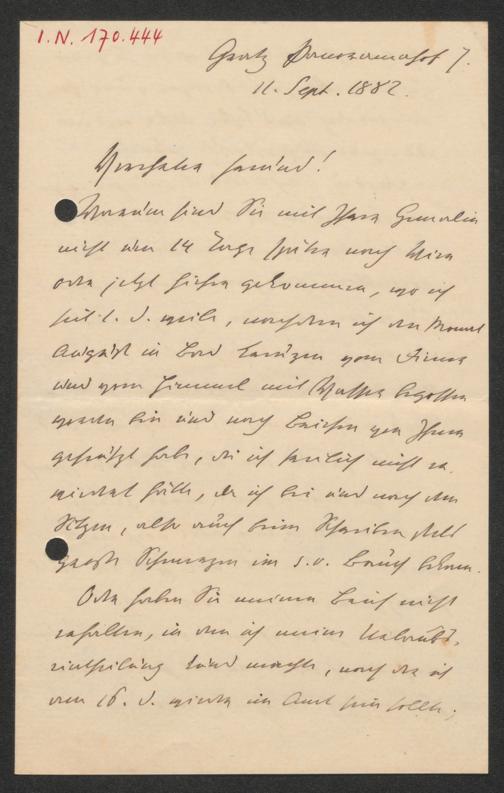 I.N. 170.444
Graz Panoramahof 7.
11. Sept. 1882.
Verehrter Freund!
Warum sind Sie mit Ihrer Gemalin
nicht um 14 Tage später nach Wien
oder jetzt hieher gekommen, wo ich
seit 1. d. weile, nachdem ich den Monat
August in Bad von Firma
und vom Himmel mit Wasser begossen
worden bin und nach Briefen von Ihnen
gehabt habe, die ich freilich nicht er-
wiedert hätte, da ich bei und nach dem
Sitzen, also auch beim Schreiben stets
große Schmerzen im s.v. Bauch bekam.
Oder haben Sie meinen Brief nicht
erhalten, in dem ich meine Urlaubs-
eintheilung kund machte, nach der ich
am 16. d. wieder im Amt sein sollte;